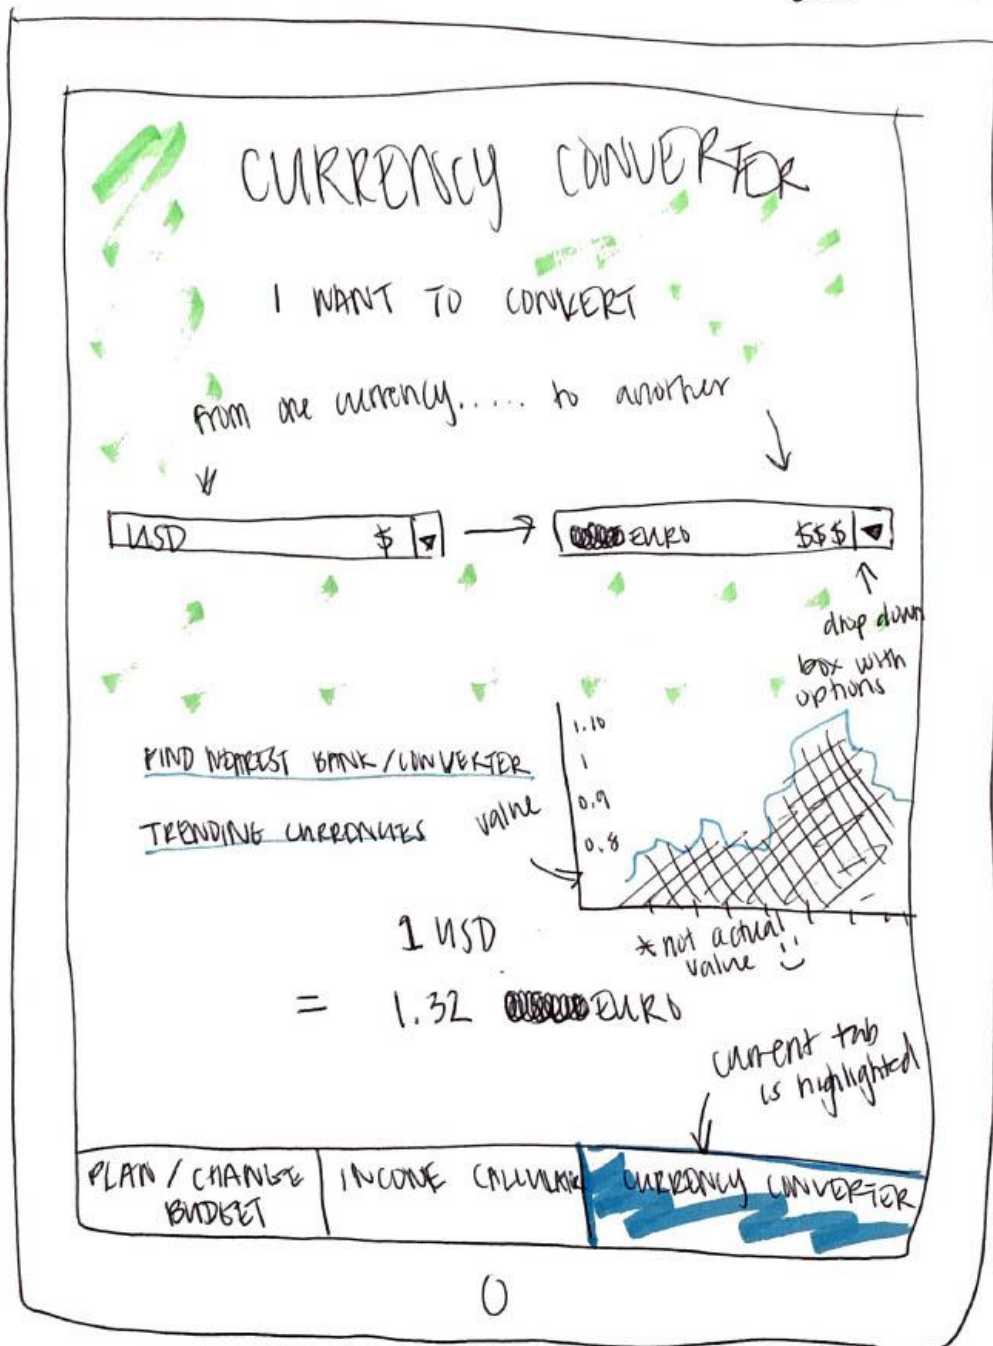 CURRENCY CONVERTER
I WANT TO CONVERT
from one currency..... to another
USD $
EURO $$$
drop down
box with
options
FIND NEAREST BANK/CONVERTER
TRENDING CURRENCIES
value
1.10
1
0.9
0.8
*not actual
value
1 USD
= 1.32 EURO
current tab
is highlighted
PLAN / CHANGE
BUDGET
INCOME CALCULATOR
CURRENCY CONVERTER